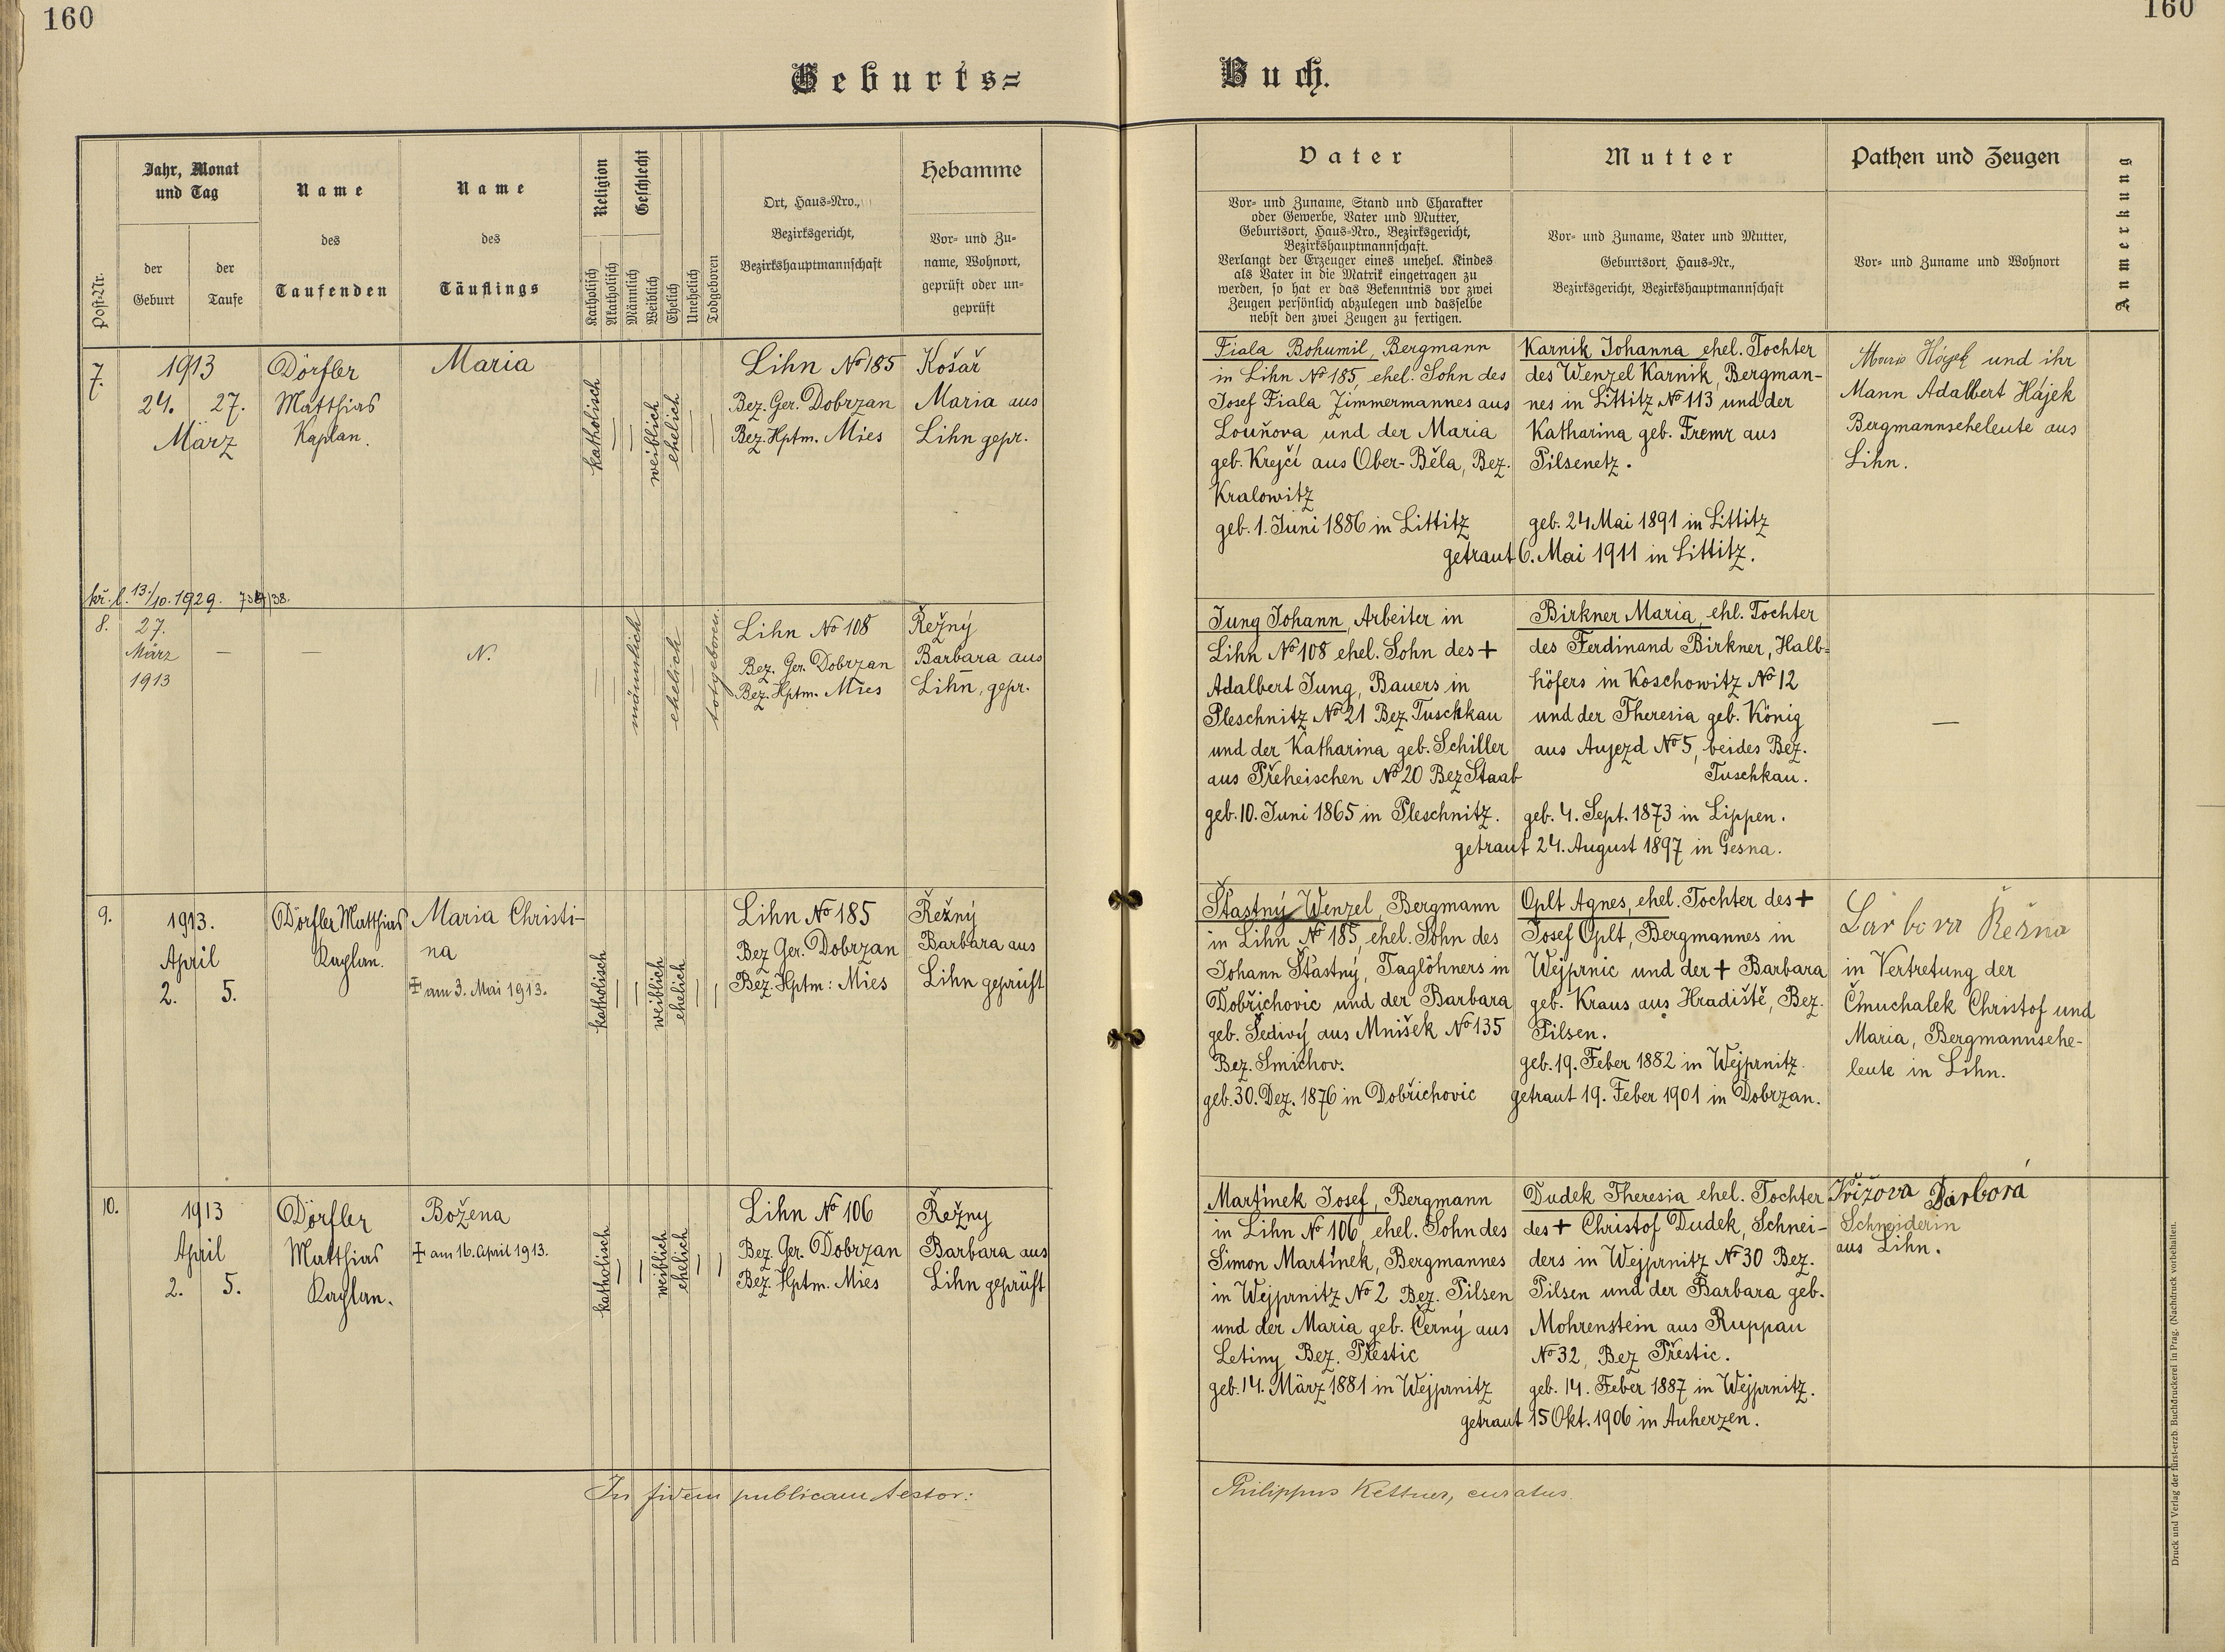 160
160
Geburts=
Buch.
Post-Nr.
Jahr, Monat
und Tag
der
Geburt
der
Taufe
Name
des
Taufenden
Name
des
Täuflings
Religion
Katholisch
Akatholisch
Geschlecht
Männlich
Weiblich
Ehelich
Unehelich
Todgeboren
Ort, Haus-Nro.,
Bezirksgericht,
Bezirkshauptmannschaft
Hebamme
Vor- und Zu-
name, Wohnort,
geprüft oder un-
geprüft
Vater
Vor- und Zuname, Stand und Charakter
oder Gewerbe, Vater und Mutter,
Geburtsort, Haus-Nro., Bezirksgericht,
Bezirkshauptmannschaft.
Verlangt der Erzeuger eines unehel. Kindes
als Vater in die Matrik eingetragen zu
werden, so hat er das Bekenntnis vor zwei
Zeugen persönlich abzulegen und dasselbe
nebst den zwei Zeugen zu fertigen.
Mutter
Vor- und Zuname, Vater und Mutter,
Geburtsort, Haus-Nr.,
Bezirksgericht, Bezirkshauptmannschaft
Pathen und Zeugen
Vor- und Zuname und Wohnort
Anmerkung
7.
1913
24. 27.
März
Dörfler
Matthias
Kaplan.
Maria
katholisch
weiblich
ehelich
Lihn No 185
Bez. Ger. Dobrzan
Bez. Hptm. Mies
Košař
Maria aus
Lihn gepr.
Fiala Bohumil, Bergmann
in Lihn No 185, ehel. Sohn des
Josef Fiala Zimmermannes aus
Louňova und der Maria
geb. Krejčí aus Ober-Běla, Bez.
Kralowitz
geb. 1. Juni 1886 in Littitz
Karnik Johanna ehel. Tochter
des Wenzel Karnik, Bergman-
nes in Littitz No 113 und der
Katharina geb. Fremr aus
Pilsenetz.
geb. 24 Mai 1891 in Littitz
getraut 6. Mai 1911 in Littitz.
Marie Hájek und ihr
Mann Adalbert Hájek
Bergmannseheleute aus
Lihn.
kř. l. 13./10. 1929.
8.
27.
März
1913
—
—
N.
männlich
ehelich
totgeboren.
Lihn No 108
Bez. Ger. Dobrzan
Bez. Hptm. Mies
Řežný
Barbara aus
Lihn, gepr.
Jung Johann, Arbeiter in
Lihn No 108 ehel. Sohn des +
Adalbert Jung, Bauers in
Pleschnitz No 21 Bez. Tuschkau
und der Katharina geb. Schiller
aus Přeheischen No 20 Bez Staab
geb. 10. Juni 1865 in Pleschnitz.
Birkner Maria, ehl. Tochter
des Ferdinand Birkner, Halb=
höfers in Koschowitz No 12
und der Theresia geb. König
aus Aujezd No 5, beides Bez.
Tuschkau.
geb. 4. Sept. 1873 in Lippen.
getraut 24. August 1897 in Gesna.
—
9.
1913.
April
2. 5.
Dörfler Matthias
Kaplan.
Maria Christi-
na
‡ am 3. Mai 1913.
katholisch
weiblich
ehelich
Lihn No 185
Bez Ger. Dobrzan
Bez. Hptm: Mies
Řežný
Barbara aus
Lihn geprüft
Šťastný Wenzel, Bergmann
in Lihn No 185, ehel. Sohn des
Johann Šťastný, Taglöhners in
Dobřichovic und der Barbara
geb. Šedivý aus Mníšek No 135
Bez. Smichov.
geb. 30. Dez. 1876 in Dobřichovic
Oplt Agnes, ehel. Tochter des +
Josef Oplt, Bergmannes in
Wejprnic und der + Barbara
geb. Kraus aus Hradiště, Bez.
Pilsen.
geb. 19. Feber 1882 in Wejprnitz.
getraut 19. Feber 1901 in Dobrzan.
Barbora Režna
in Vertretung der
Čmuchalek Christof und
Maria, Bergmannsehe-
leute in Lihn.
10.
1913
April
2. 5.
Dörfler
Matthias
Kaplan.
Božena
‡ am 16. April 1913.
katholisch
weiblich
ehelich
Lihn No 106
Bez. Ger. Dobrzan
Bez. Hptm. Mies
Řežny
Barbara aus
Lihn geprüft
Martínek Josef, Bergmann
in Lihn No 106, ehel. Sohn des
Simon Martínek, Bergmannes
in Wejprnitz No 2 Bez. Pilsen
und der Maria geb. Černý aus
Letiny Bez. Přestic
geb. 14. März 1881 in Wejprnitz
Dudek Theresia ehel. Tochter
des + Christof Dudek, Schnei-
ders in Wejprnitz No 30 Bez.
Pilsen und der Barbara geb.
Mohrenstein aus Ruppau
No 32, Bez Přestic.
geb. 14. Feber 1887 in Wejprnitz.
getraut 15 Okt. 1906 in Auherzen.
Křížova Barbora
Schneiderin
aus Lihn.
In fidem publicam testor:
Philippus Kettner, curatus.
Druck und Verlag der fürst-erzb. Buchdruckerei in Prag. (Nachdruck vorbehalten.